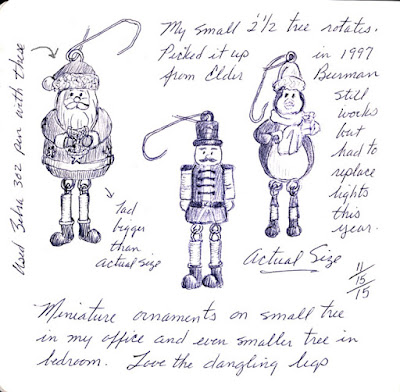 My small 2 1/2 tree rotates.
Picked it up in 1997
from Elder Beerman
Still
works
but
had to
replace
lights
this
year.
Used Zebra 302 pen with these
Tad
bigger
than
actual size
Actual Size
11/15/15
Miniature ornaments on small tree
in my office and even smaller tree in
bedroom. Love the dangling legs